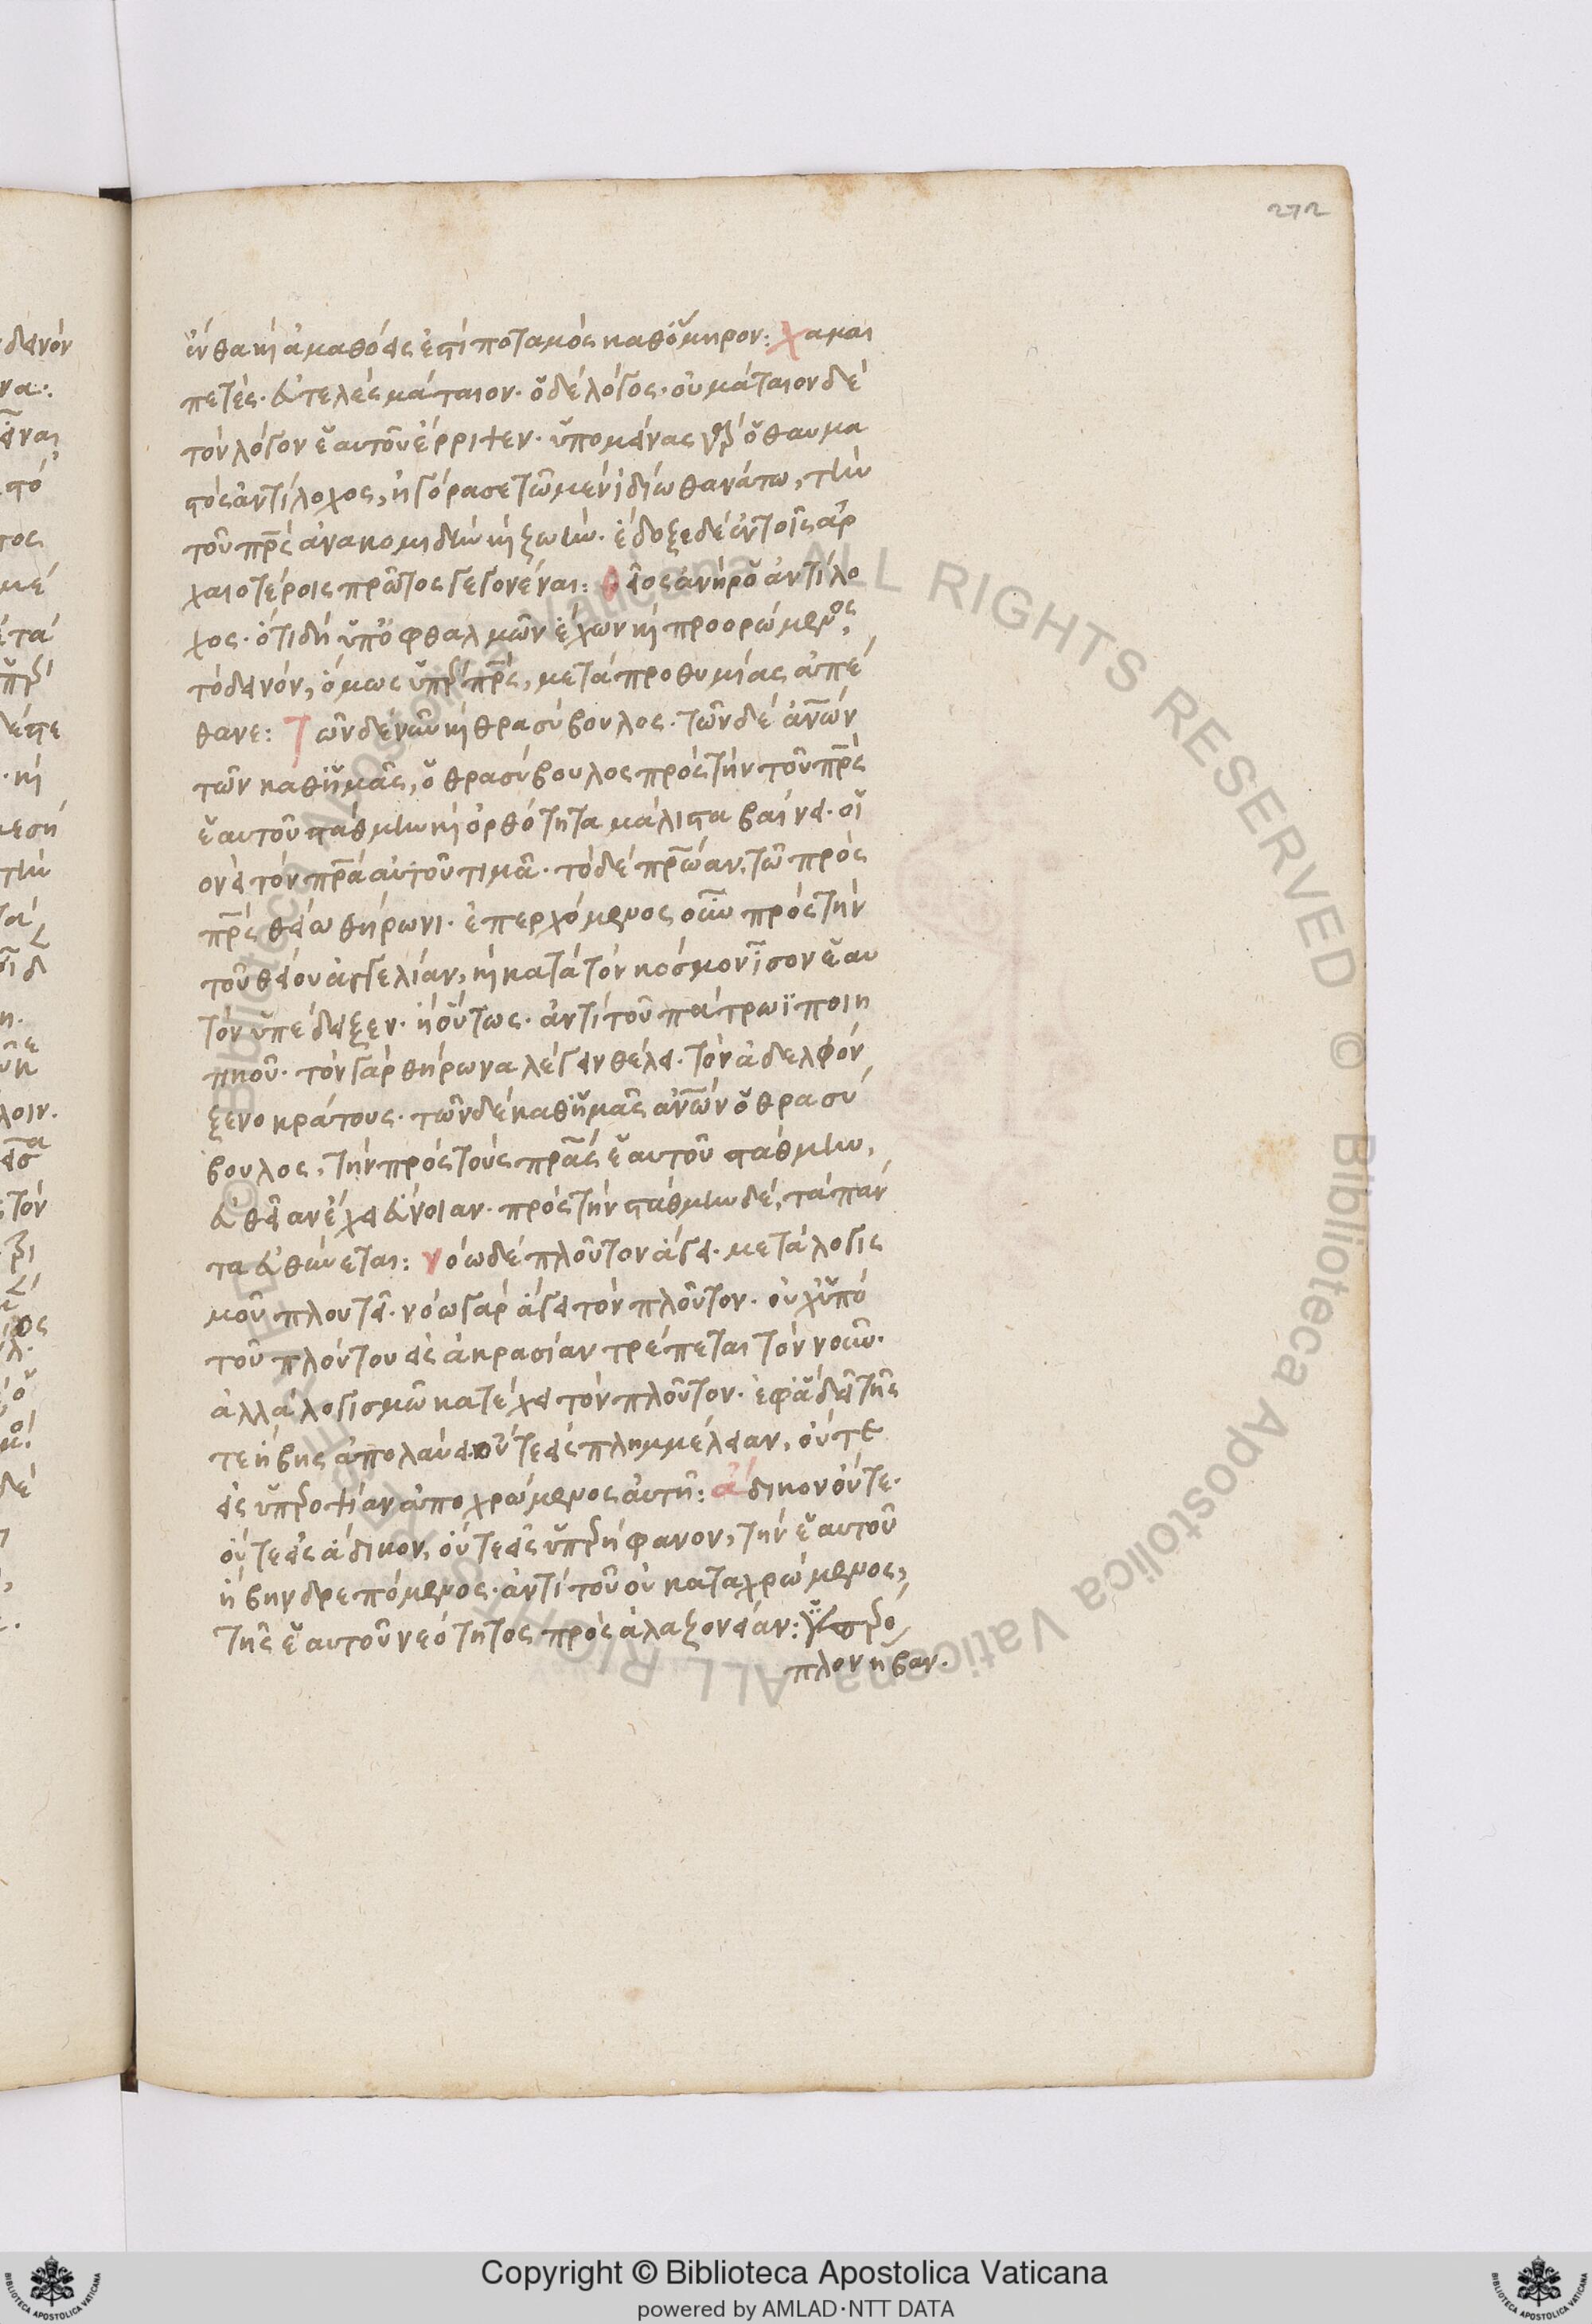 272
ἔνθα καὶ ἀμαθόεις ἐστὶ ποταμὸς καθ' ὅμηρον: χαμαι
πετὲς· ἀτελὲς μάταιον· ὁ δὲ λόγος· οὐ μάταιον δὲ
τὸν λόγον ἑαυτοῦ ἔρριψεν· ὑπομείνας γὰρ ὁ θαυμα
στὸς ἀντίλοχος, ἠγόρασε τῶ μὲν ἰδίω θανάτω, τὴν
τοῦ πρς ἀνακομιδὴν καὶ ζωήν· ἔδοξε δὲ ἐν τοῖς ἀρ
χαιοτέροις πρῶτος γεγονέναι: θεῖος ἀνὴρ ὁ ἀντίλο
χος· ὅτι δὴ ὑπ' ὀφθαλμῶν ἔχων καὶ προορώμενος
τὸ δεινὸν, ὅμως ὑπὲρ πρς, μετὰ προθυμίας ἀπέ
θανε: Τῶν δὲ νῦν καὶ θρασύβουλος· τῶν δὲ ἀνων
τῶν καθ' ἡμᾶς, ὁ θρασύβουλος πρὸς τὴν τοῦ πρς
ἑαυτοῦ στάθμην καὶ ὀρθότητα μάλιστα βαίνει· οἱ
ονεὶ τὸν πρα αὐτοῦ τιμᾶ· τὸ δὲ πρώαν, τῶ πρὸς
πρς θείω θήρωνι· ἐπερχόμενος οὖν πρὸς τὴν
τοῦ θείου ἀγγελίαν, καὶ κατὰ τὸν κόσμον ἴσον ἑαυ
τὸν ὑπέδειξεν· ἢ οὕτως· ἀντὶ τοῦ πάτρωϊ ποιη
τικοῦ· τὸν γὰρ θήρωνα λέγειν θέλει· τὸν ἀδελφὸν
ξενοκράτους· τῶν δὲ καθ' ἡμᾶς ἀνων ὁ θρασύ
βουλος, τὴν πρὸς τοὺς πρας ἑαυτοῦ στάθμην,
εὐθεῖαν ἔχει εὔνοιαν· πρὸς τὴν στάθμην δὲ, τὰ πάν
τα εὐθύνεται: νόω δὲ πλοῦτον ἄγει· μετὰ λογισ
μοῦ πλουτεῖ· νόω γὰρ ἄγει τὸν πλοῦτον· οὐχ ὑπὸ
τοῦ πλούτου εἰς ἀκρασίαν τρέπεται τὸν νοῦν·
ἀλλὰ λογισμῶ κατέχει τὸν πλοῦτον· ἐφ' ἃ δεῖ τῆς
τε ἥβης ἀπολαύει οὔτε εἰς πλημμέλειαν, οὔτε
εἰς ὑπεροψίαν ἀποχρώμενος αὐτῆ: ἄδικον οὔτε·
οὔτε εἰς ἄδικον, οὔτε εἰς ὑπερήφανον, τὴν ἑαυτοῦ
ἥβην δρεπόμενος· ἀντὶ τοῦ οὐ καταχρώμενος,
τῆς ἑαυτοῦ νεότητος πρὸς ἀλαζονείαν: ὑπέρο
πλον ἥβαν.
Copyright © Biblioteca Apostolica Vaticana
powered by AMLAD·NTT DATA